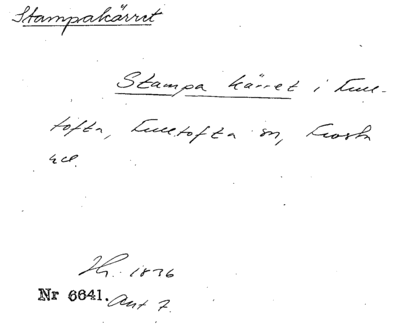 Stampakärret
Stampa kärret i Full-
tofta, Fulltofta sn, Frosta
hd.
Jh. 1836
Nr 6641. Ant 7.